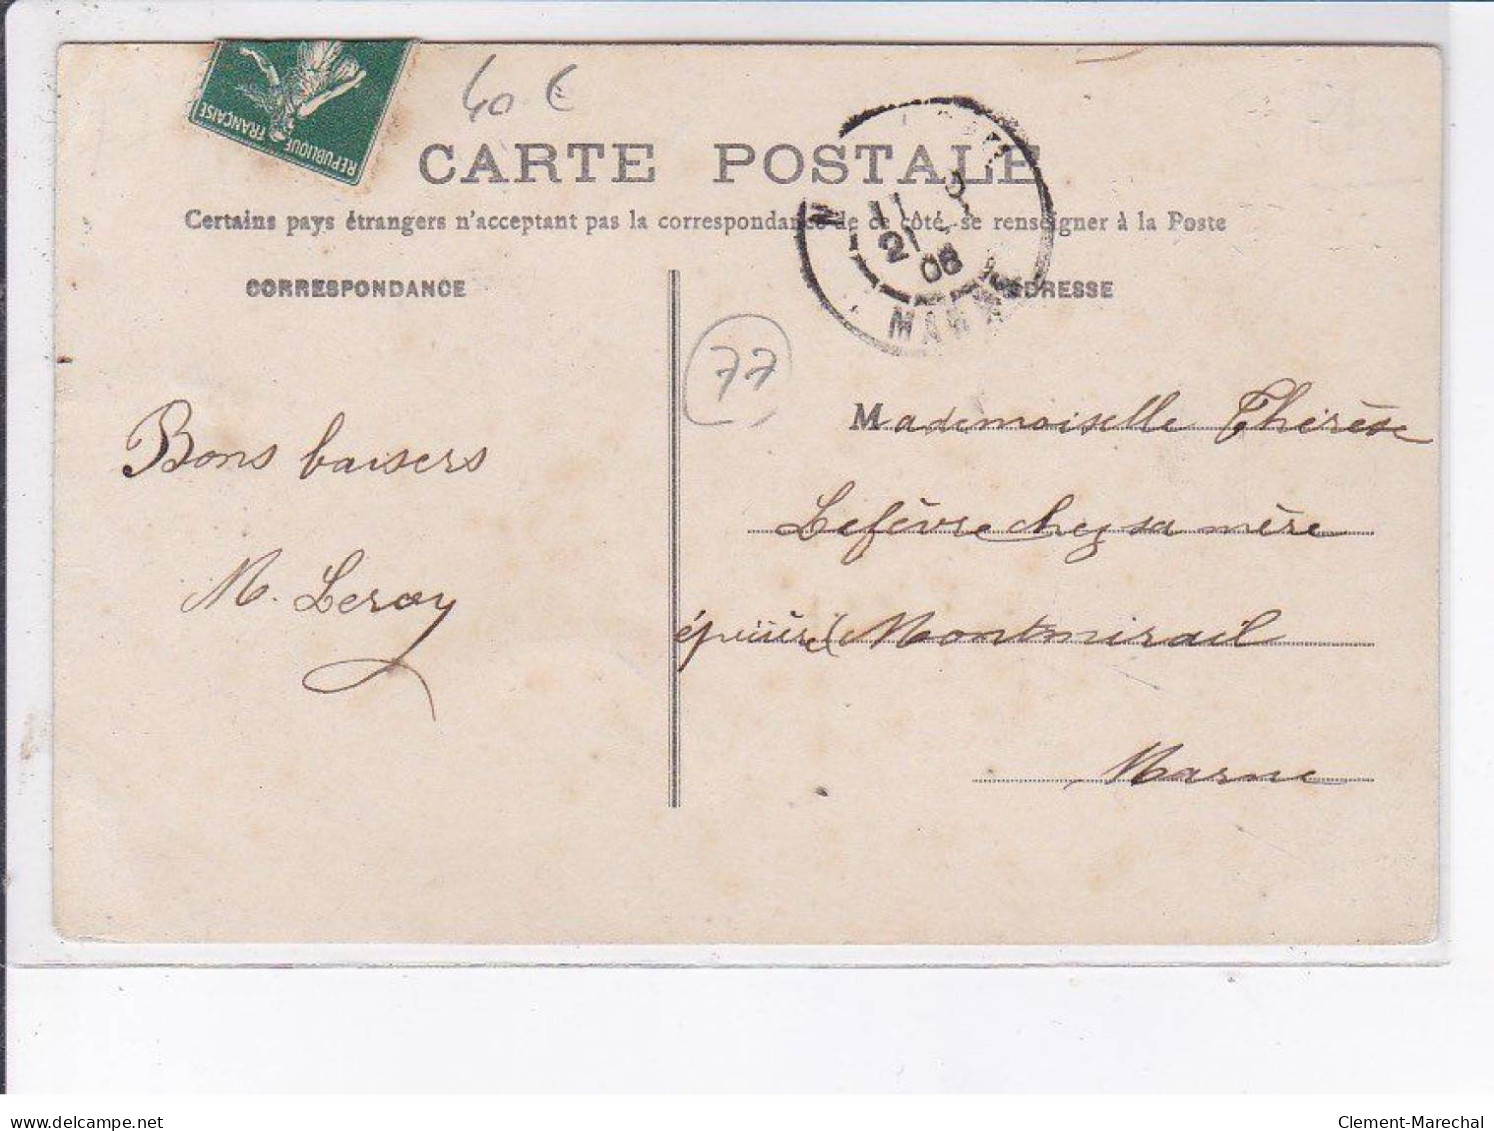 RÉPUBLIQUE
FRANÇAISE
40 €
CARTE POSTALE
Certains pays étrangers n'acceptant pas la correspondance de ce côté, se renseigner à la Poste
11
21
08
MARNE
CORRESPONDANCE
ADRESSE
77
Bons baisers
M. Leroy
Mademoiselle Thérèse
Lefèvre chez sa mère
Montmirail
Marne
delcampe.net
Clement-Marechal